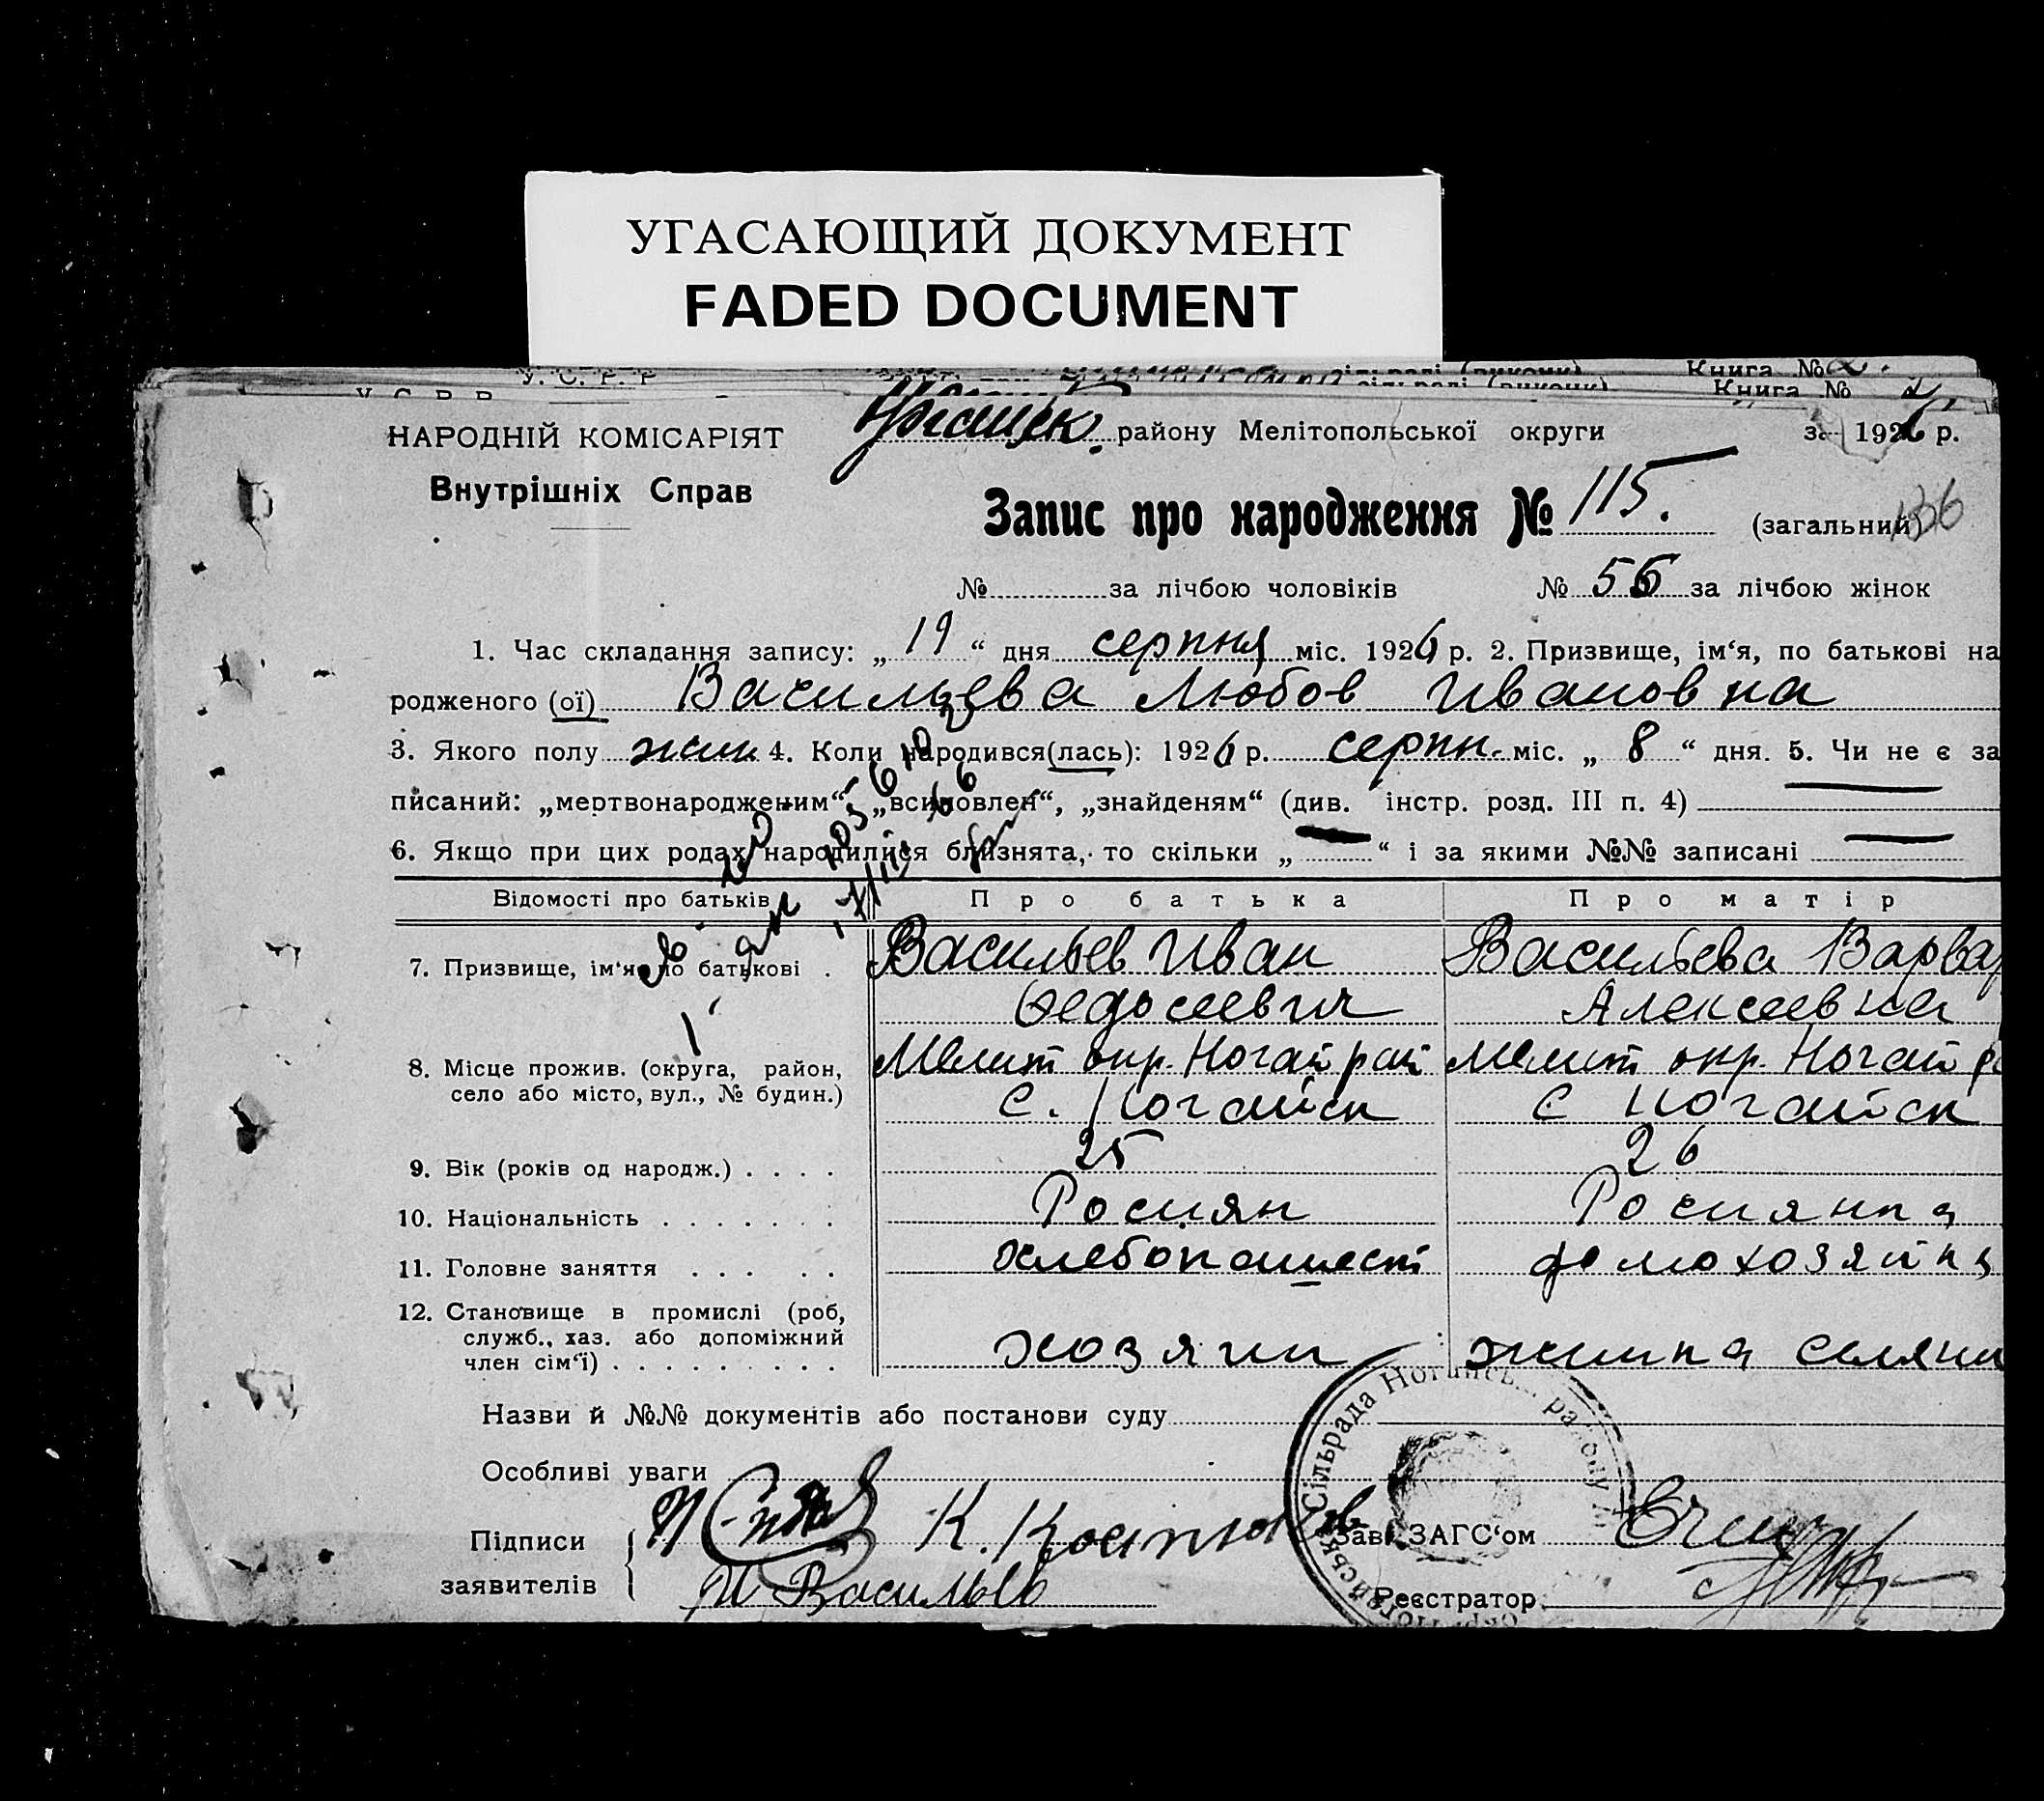 УГАСАЮЩИЙ ДОКУМЕНТ
FADED DOCUMENT
У. С. Р. Р
Книга №
У. С. Р. Р
Книга №
НАРОДНІЙ КОМІСАРІЯТ
району Мелітопольської округи за 1926 р.
Внутрішніх Справ
Запис про народження № 115. (загальний)
№ за лічбою чоловіків № 56 за лічбою жінок
1. Час складання запису: „ 19 “ дня серпня міс. 1926 р. 2. Призвище, ім‘я, по батькові на
родженого (ої) Васильєва Любов Ивановна
3. Якого полу жин 4. Коли народився(лась): 1926 р. серпн. міс. „ 8 “ дня. 5. Чи не є за
писаний: „мертвонародженим“, „всиновлен“, „знайденям“ (див. інстр. розд. III п. 4)
6. Якщо при цих родах народилися близнята, то скільки „ “ і за якими №№ записані
Відомості про батьків Про батька Про матір
7. Призвище, ім‘я, по батькові . Васильев Иван Васильева Варвар
Федосеевич Алексеевна
8. Місце прожив. (округа, район, Мелит окр. Ногай рай Мелит окр. Ногай
село або місто, вул., № будин.) с. Ногайск с Ногайск
9. Вік (років од народж.) . . . . 25 26
10. Національність . . . . . . . Росиян Росиянка
11. Головне заняття . . . . . хлебопашест домохозяйка
12. Становище в промислі (роб,
служб., хаз. або допоміжний
член сім‘ї) . . . . . . . . . хозяин жинка селянин
Назви й №№ документів або постанови суду
Особливі уваги
Підписи К. Зав. ЗАГС‘ом
заявителів И Васильев Реєстратор
Сільрада